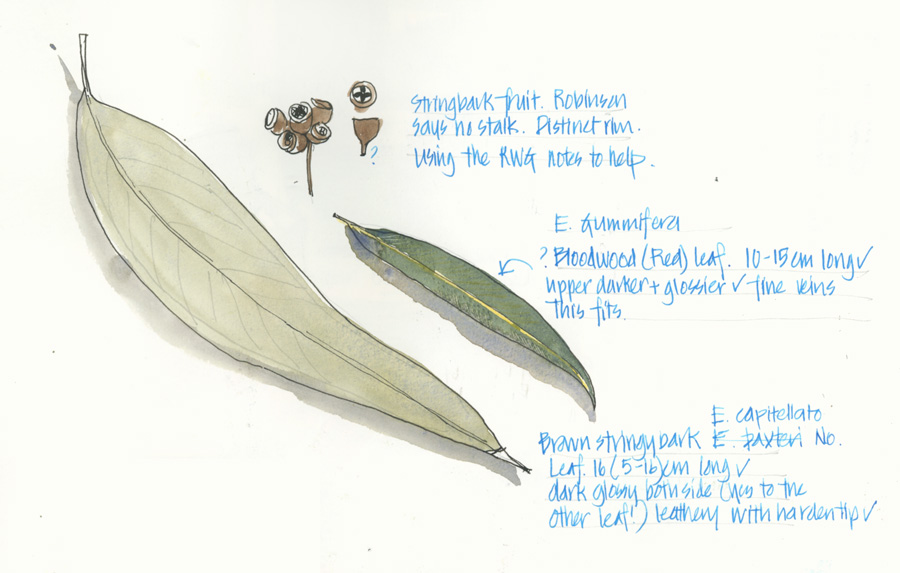 stringbark fruit. Robinson
says no stalk. Distinct rim.
using the RWG notes to help.
?
E. Gummifera
? Bloodwood (Red) leaf. 10-15cm long ✓
upper darker + glossier ✓ fine veins
This fits.
E. capitellato
Brown stringybark E. baxteri No.
Leaf. 16 (5-16)cm long ✓
dark glossy both side (yes to the
other leaf!) leathery with harden tip ✓